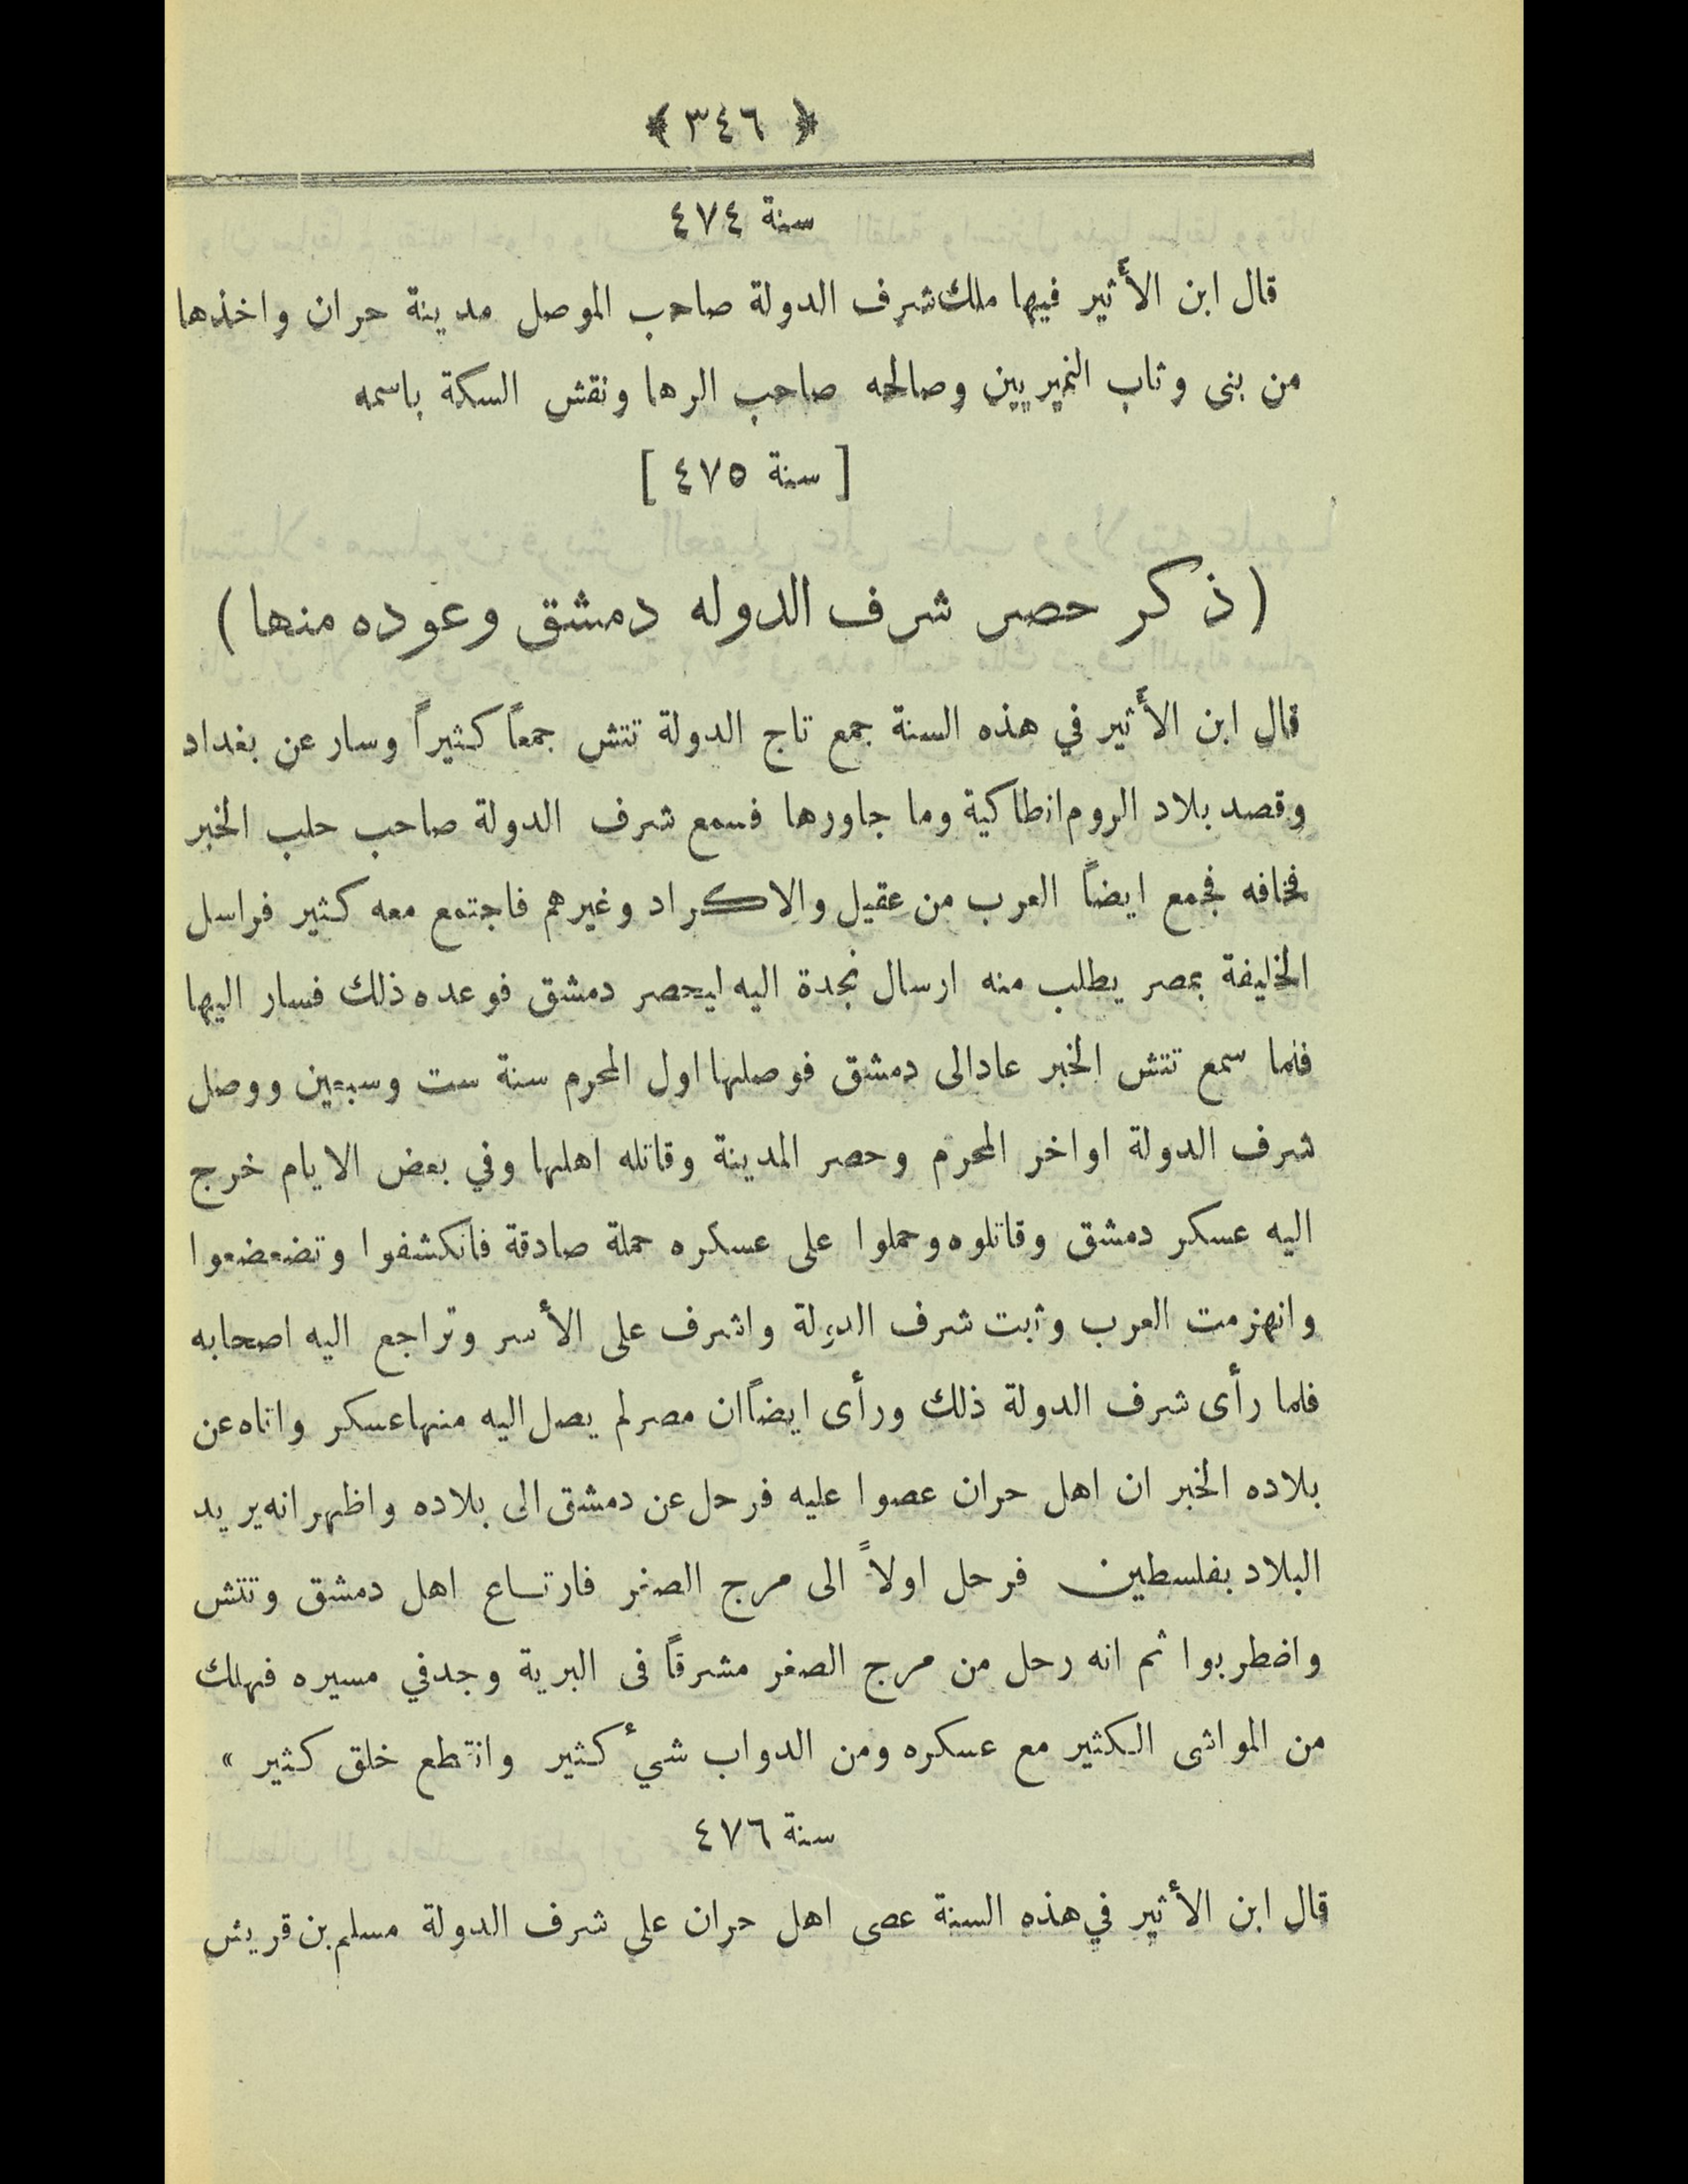 ﴿ ٣٤٦ ﴾
سنة ٤٧٤
قال ابن الأثير فيها ملك شرف الدولة صاحب الموصل مدينة حران واخذها
من بنى وثاب النميريين وصالحه صاحب الرها ونقش السكة باسمه
[ سنة ٤٧٥ ]
(ذكر حصر شرف الدوله دمشق وعوده منها)
قال ابن الأثير في هذه السنة جمع تاج الدولة تتش جمعاً كثيراً وسار عن بغداد
وقصد بلاد الروم انطاكية وما جاورها فسمع شرف الدولة صاحب حلب الخبر
فخافه فجمع ايضاً العرب من عقيل والاكراد وغيرهم فاجتمع معه كثير فراسل
الخليفة بمصر يطلب منه ارسال نجدة اليه ليحصر دمشق فوعده ذلك فسار اليها
فلما سمع تتش الخبر عاد الى دمشق فوصلها اول المحرم سنة ست وسبعين ووصل
شرف الدولة اواخر المحرم وحصر المدينة وقاتله اهلها وفي بعض الايام خرج
اليه عسكر دمشق وقاتلوه وحملوا على عسكره حملة صادقة فانكشفوا وتضعضعوا
وانهزمت العرب وثبت شرف الدولة واشرف على الأسر وتراجع اليه اصحابه
فلما رأى شرف الدولة ذلك ورأى ايضاً ان مصر لم يصل اليه منها عسكر واتاه عن
بلاده الخبر ان اهل حران عصوا عليه فرحل عن دمشق الى بلاده واظهر انه يريد
البلاد بفلسطين فرحل اولاً الى مرج الصفر فارتاع اهل دمشق وتتش
واضطربوا ثم انه رحل من مرج الصفر مشرقاً فى البرية وجد في مسيره فهلك
من المواشى الكثير مع عسكره ومن الدواب شئ كثير وانقطع خلق كثير »
سنة ٤٧٦
قال ابن الأثير في هذه السنة عصى اهل حران على شرف الدولة مسلم بن قريش